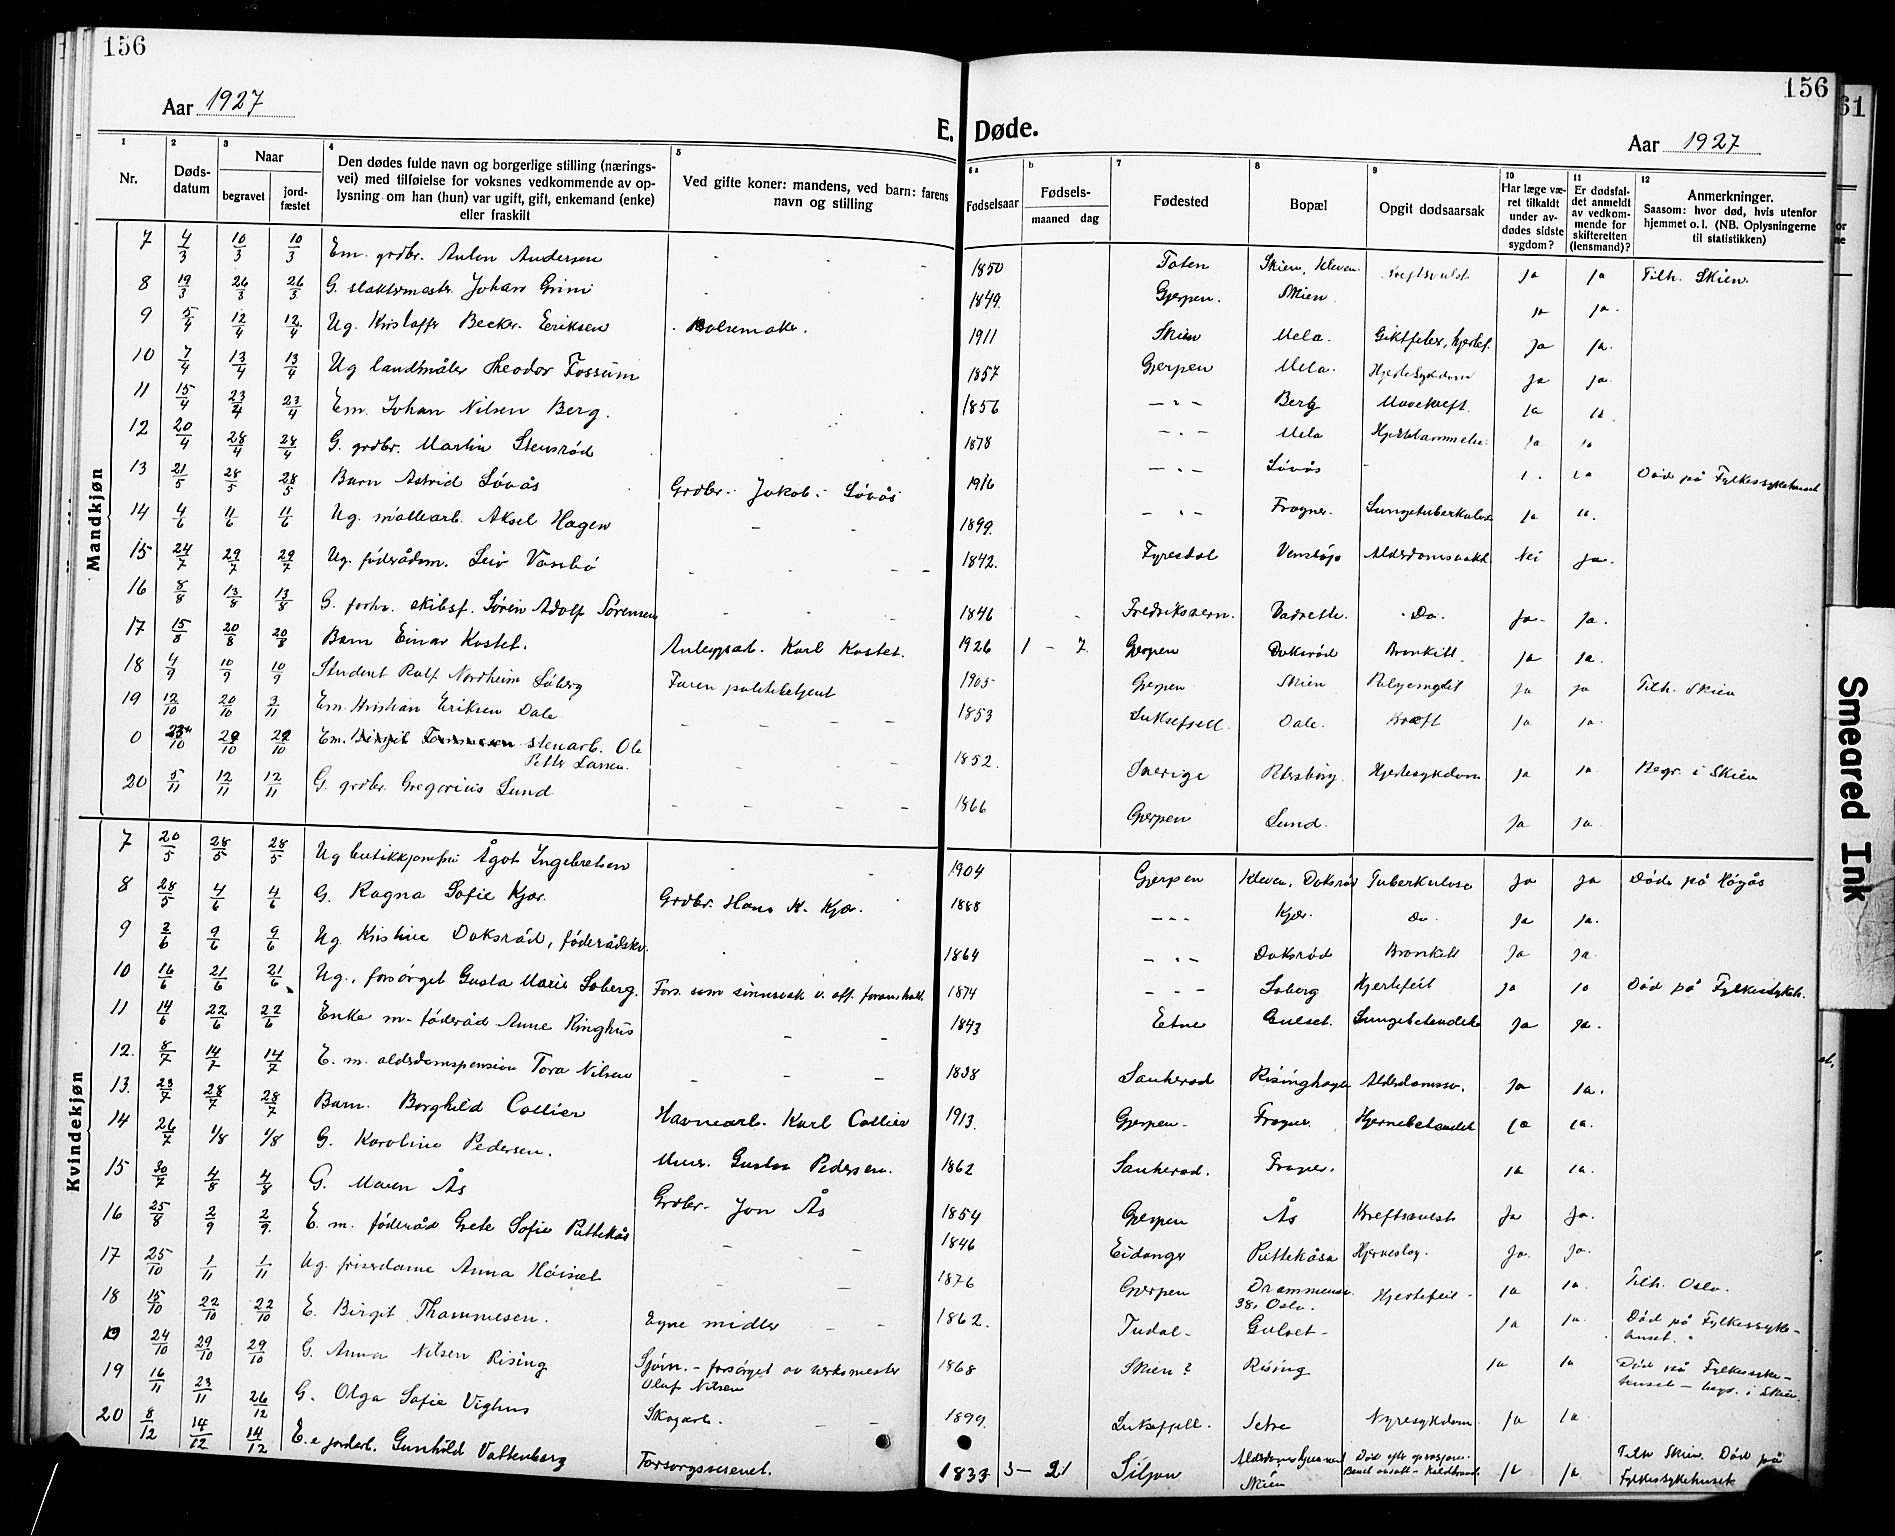 156
156
61
Aar 1927
E. Døde.
Aar 1927
1 Nr.
2 Døds-datum
3 Naar
begravet
jord-fæstet
4 Den dødes fulde navn og borgerlige stilling (nærings-
vei) med tilføielse for voksnes vedkommende av op-
lysning om han (hun) var ugift, gift, enkemand (enke)
eller fraskilt
5 Ved gifte koner: mandens, ved barn: farens
navn og stilling
6 a Fødselsaar
b Fødsels-
maaned dag
7 Fødested
8 Bopæl
9 Opgit dødsaarsak
10 Har læge væ-
ret tilkaldt
under av-
dødes sidste
sygdom?
11 Er dødsfal-
det anmeldt
av vedkom-
mende for
skifteretten
(lensmand)?
12 Anmerkninger.
Saasom: hvor død, hvis utenfor
hjemmet o. l. (NB. Oplysningerne
til statistikken)
Mandkjøn
7 4/3 10/3 10/3 Em. grdbr. Anton Andersen - - 1850 Toten Skien, Kleven Kreftsvulst Ja Ja Tilh. Skien.
8 19/3 26/3 26/3 G. slaktermester Johan Grini 1849. Gjerpen. Skien Ja Ja.
9 5/4 12/4 12/4 Ug. Kristoffer Becker Eriksen Pølsemaker. 1911 Skien Mela. Giktfeber, hjertef. Ja Ja.
10 7/4 13/4 13/4 Ug landmåler Theodor Fossum 1857 Gjerpen Mela. Hjertesykdom Ja Ja.
11 15/4 23/4 23/4 Em. Johan Nilsen Berg. 1856 - " - Berg Mavekreft. Ja Ja
12 20/4 28/4 28/4 G. grdbr. Martin Stensrød 1878 - " - Mela Hjertelammelse. Ja Ja
13 21/5 28/5 28/5 Barn Astrid Løvås Grdbr. Jakob Løvås 1916 - " - Løvås - Ja Død på Fylkessykehuset
14 4/6 11/6 11/6 Ug. møllearb. Aksel Hagen - - 1899. - " - Frogner. Lungetuberkulose Ja Ja.
15 24/7 29/7 29/7 Ug. føderådsm. Leiv Vansbø - - - - 1842. Fyresdal Venstøp Alderdomssvakh. Nei Ja.
16 8/8 13/8 13/8 G. forhv. skibsf. Søren Adolf Sørensen - - - 1846 Fredriksvern. Vadrette. Do. Ja. Ja.
17 15/8 20/8 20/8 Barn Einar Kostet. Anleggsarb. Karl Kostet. 1926 1 - 7 Gjerpen Doksrød Bronkitt. Ja Ja.
18 4/9 10/9 10/9 Student Rolf Nordheim Søberg Faren politibetjent 1905 Gjerpen Skien Ja Ja Tilh. Skien
19 12/10 20/10 3/11 Em. Kristian Eriksen Dale - - - - 1853 Luksefjell. Dale. Kræft Ja Ja.
0 /10 29/10 29/10 Em. Birgit Tommesen stenarb. Ole
Petter Larsen. - - - - 1852. Sverige Petersborg. Hjertesykdom Ja Ja Begr. i Skien
20 5/11 12/11 12/11 G. grdbr. Gregorius Lund - - - - 1866 Gjerpen Lund. Ja Ja.
Kvindekjøn
7 20/5 28/5 28/5 Ug butikkjomfru Ågot Ingebretsen 1904 Gjerpen Kleven, Doksrød Tuberkulose Ja Ja Døde på Høyås
8 28/5 4/6 4/6 G. Ragna Sofie Kjær. Grdbr. Hans K. Kjær. 1888 - " - Kjær. Do. Ja Ja.
9 2/6 9/6 9/6 Ug. Kristine Doksrød, føderådskv. 1864 - " - Doksrød Bronkitt Ja Ja.
10 16/6 21/6 21/6 Ug., forsørget Gusta Marie Soberg. Fors. som sinnssvak v. off. foranstalt. 1874 - " - Soberg Hjertefeil Ja Ja Død på Fylkessykeh.
11 14/6 22/6 22/6 Enke m. føderåd Anne Ringhus - - 1843 Etne Gulset. Lungebetendelse Ja Ja.
12. 8/7 14/7 14/7 E. m. aldersdomspension Tora Nilsen - - - 1838 Saukerød Risinghagen Alderdomssv. Ja Ja.
13. 23/7 28/7 28/7 Barn. Borghild Collier Havnearb. Karl Collier 1913. Gjerpen. Frogner. Hjernebetendelse Ja Ja.
14 26/7 1/8 1/8 G. Karoline Pedersen. Murer. Gustav Pedersen. 1862 Saukerød. Frogner. Ja Ja.
15 30/7 4/8 4/8 G. Maren Ås Grdbr. Jon Ås 1854 Gjerpen Ås Kreftsvulst Ja Ja.
16 25/8 2/9 2/9. E. m. føderåd Grete Sofie Puttekås - - 1846 Eidanger Puttekåsa Hjerneslag. Ja. Ja.
17 25/10 1/11 1/11 Ug. friserdame Anna Høiset - - - 1876 Gjerpen Drammensv.
38, Oslo. Hjertefeil - Ja Ja. Tilh. Oslo.
18 15/10 22/10 22/10 E. Birgit Thommesen. Egne midler - - 1862. Tudal - Gulset - Ja Ja. Død på Fylkessyke-
huset.
24/10 29/10 29/10 G. Anna Nilsen Rising Sjørn. - forsørget av verksmester
Oluf Nilsen 1868 Skien? Rising Ja Ja Død på Fylkessyke-
huset - begr. i Skien.
19 16/11 23/11 26/12 G. Olga Sofie Vighus Skogarb. - - 1899. Luksefjell. Setre Nyresykdom Ja Ja
20 8/12 14/12 14/12 E. e jordarb. Gunhild Vattenberg Forsorgsvesenet. 1833 3 - 21 Siljan Alderdomshjemmet
Skien Død efter operasjon.
Benet avsatt - Koldbrand. Ja Ja Tilh Skien. Død på
Fylkessykehuset
Smeared Ink